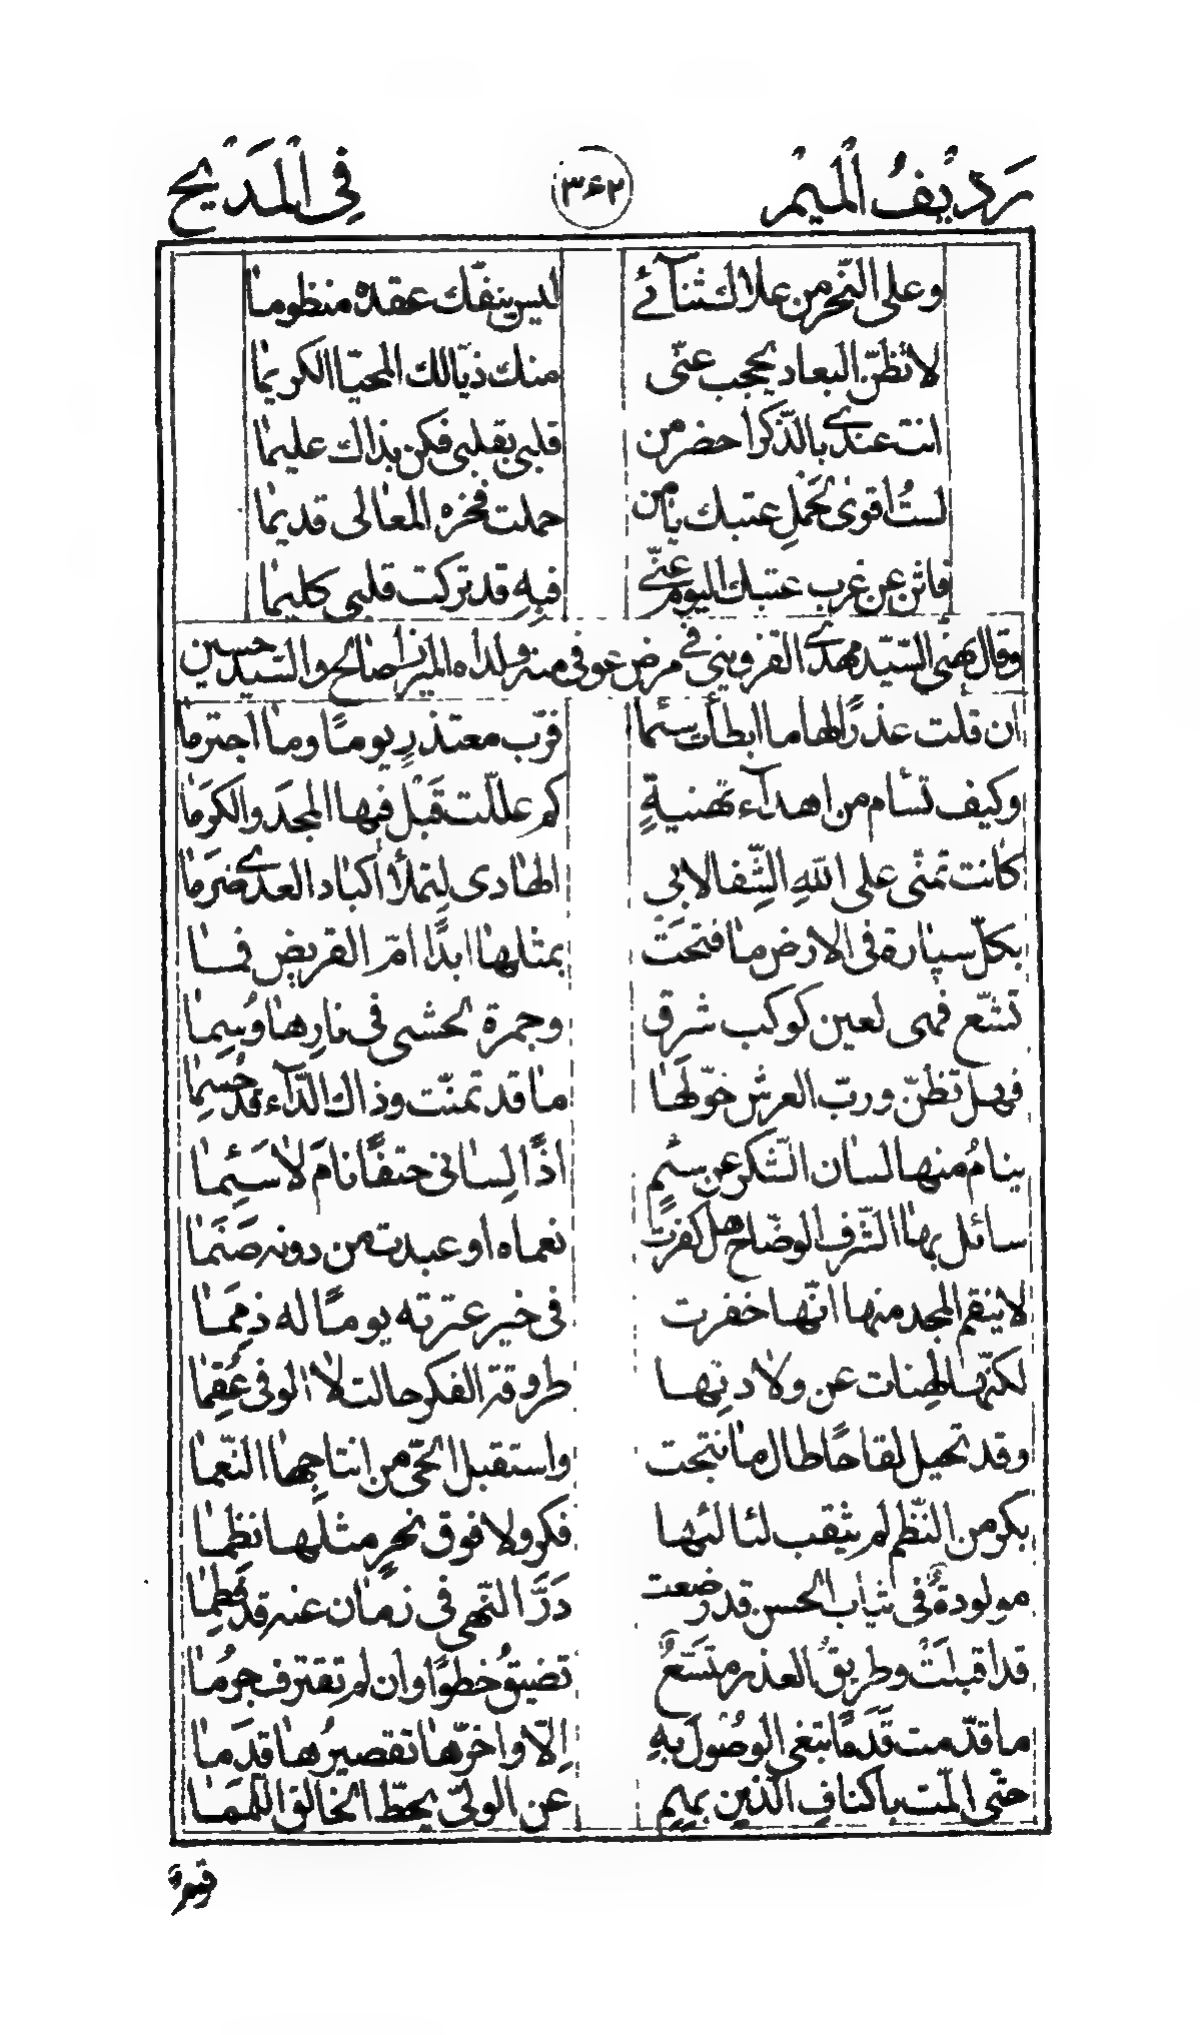 رَدِيْفُ الْمِيْمِ ٣٦٢ فِي الْمَدِيْحِ
وعلى النّحر من علاك ثنآئے ليس ينفّك عقده منظوما
لا تظنّ البعاد يحجب عنّى منك ذيّالك المحيّا الكريما
انت عندے بالذّكر احضر من قلبى بقلبى فكن بذاك عليما
لستُ اقوىٰ لحملِ عتبك يا من حملت فخره المعالى قديما
فاثن عن غرب عتبك اليوم عنّے فبهِ قد تركت قلبى كليما
وقال يهنى السّيّد مهدے القزوينى فے مرض عوفى منه ولداه الميرزا صالح والسّيد حسين
ان قلت عذرًا لها ما ابطأت سئما فربّ معتذرٍ يومًا وما اجترما
وكيف تسأم من اهدآء تهنيةٍ كم علّلت قَبْل فيها المجدَ والكرَما
كانت تمنّى على اللهِ الشِّفا لابى الهادى لِتملأ اكباد العدے ضرَما
بكلّ سيّارة فى الارض ما فتحَتْ بمثلها ابدًا امّ القريض فما
تشّع فهى لعين كوكب شرق وجمرة لحشى فى نارِها وُسِما
فهل تظنّ وربّ العرش خوّلها ما قد تمنّت وذاك الدّآء قد حُسِما
ينامُ منها لسان الشّكر عن سئمٍ اذًا لِسانى حتفًا نامَ لا سَئِما
سائل بها الشّرف الوضّاح هل كفرت نعماه او عبدت من دونه صَنَما
لا ينقم المجد منها انّها خفرت فى خير عترته يومًا له ذِمَما
لكنّها لهنات عن ولادتِها طروقة الفكر حالت لا الوفى عُقِما
وقد تحيل لقاحًا طال ما نتجت واستقبل الحىّ من انتاجِها النّعما
بكر من النّظم لم يثقب لئالئها فكر ولا فوق نحرٍ مثلَها نظِما
مولودةٌ فى ثياب الحسن قد رضعت دَرَّ النّهى فى زمان عنه قد فُطِما
قد اقبلَتْ وطريقُ العذر متّسَعٌ تضيقُ خطوًا وان لم تقترف جرُما
ما قدّمت قَدَمًا تبغى الوصُولَ بهِ اِلّا واخّرها تقصيرُها قدَما
حتّى المّت باكنافِ الّذين بِهِم عن الولىّ يحطّ الخالق اللّمَما